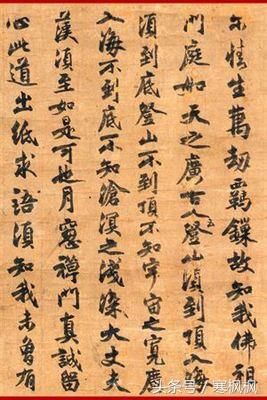 尓情生萬劫羈鏁故知我佛祖
門庭如天之廣古人登山須到頂入海
須到底登山不到頂不知宇宙之寬廣
入海不到底不知滄溟之淺深大丈夫
漢須至如是可也月窓禅門真誠留
心此道出紙求語須知我未曾有
头条号 / 寒枫枫